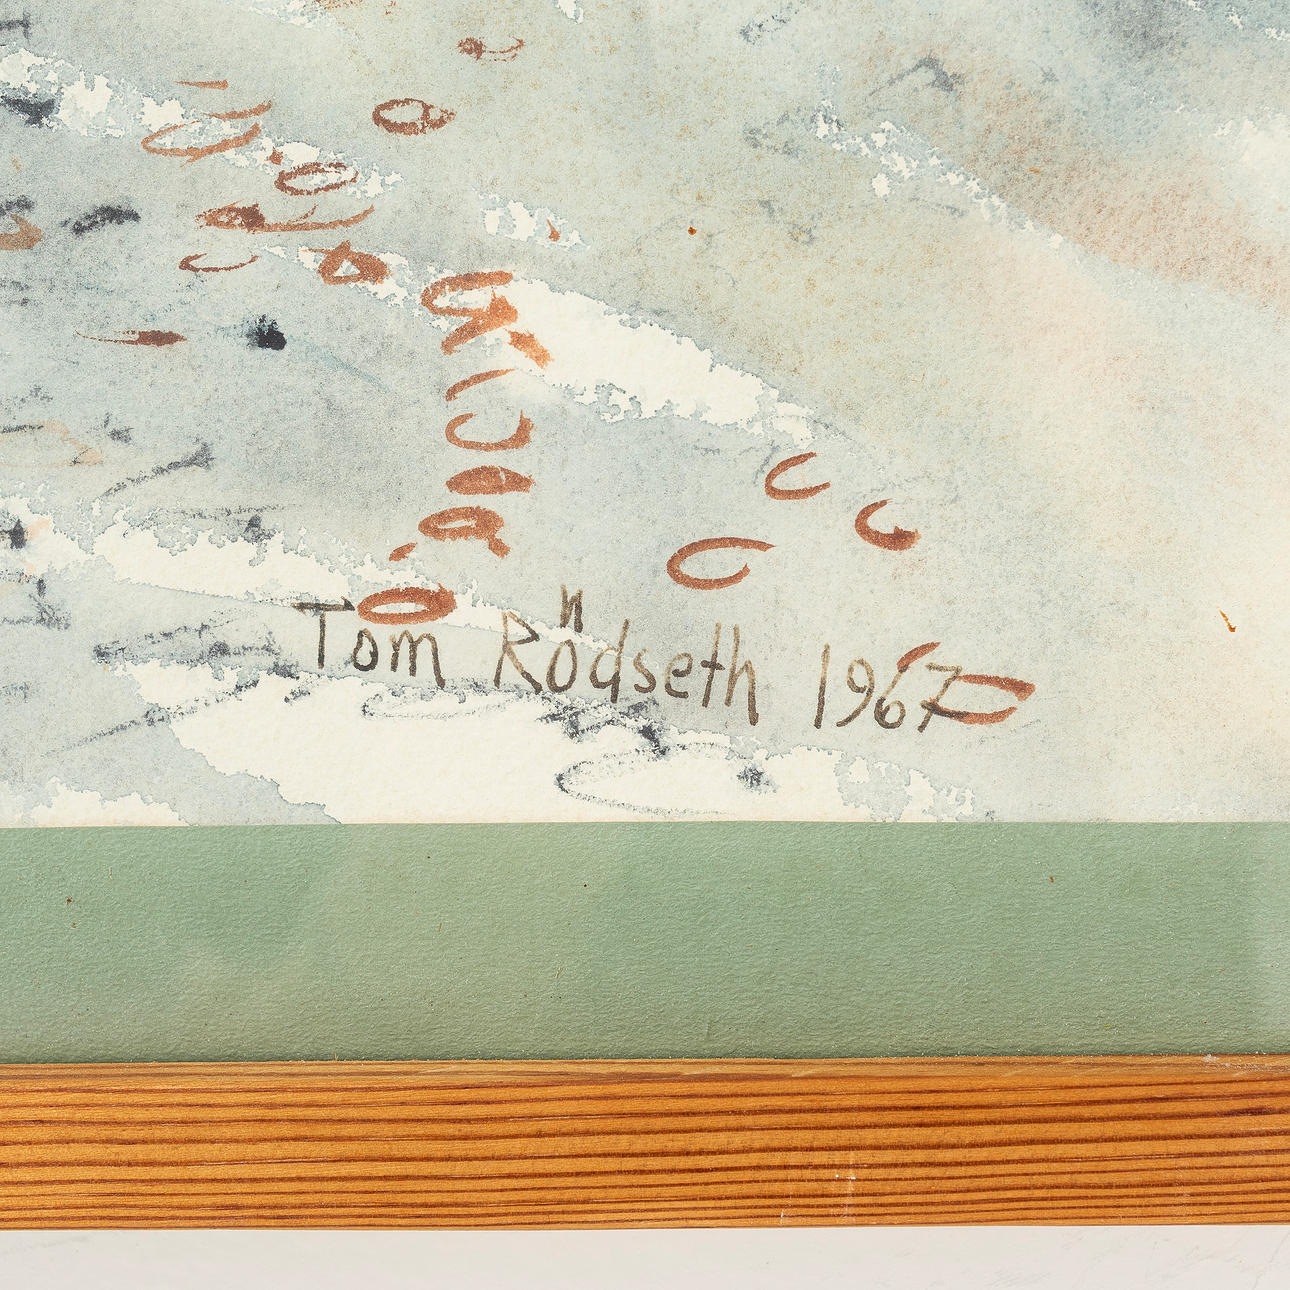 Tom Rödseth 1967